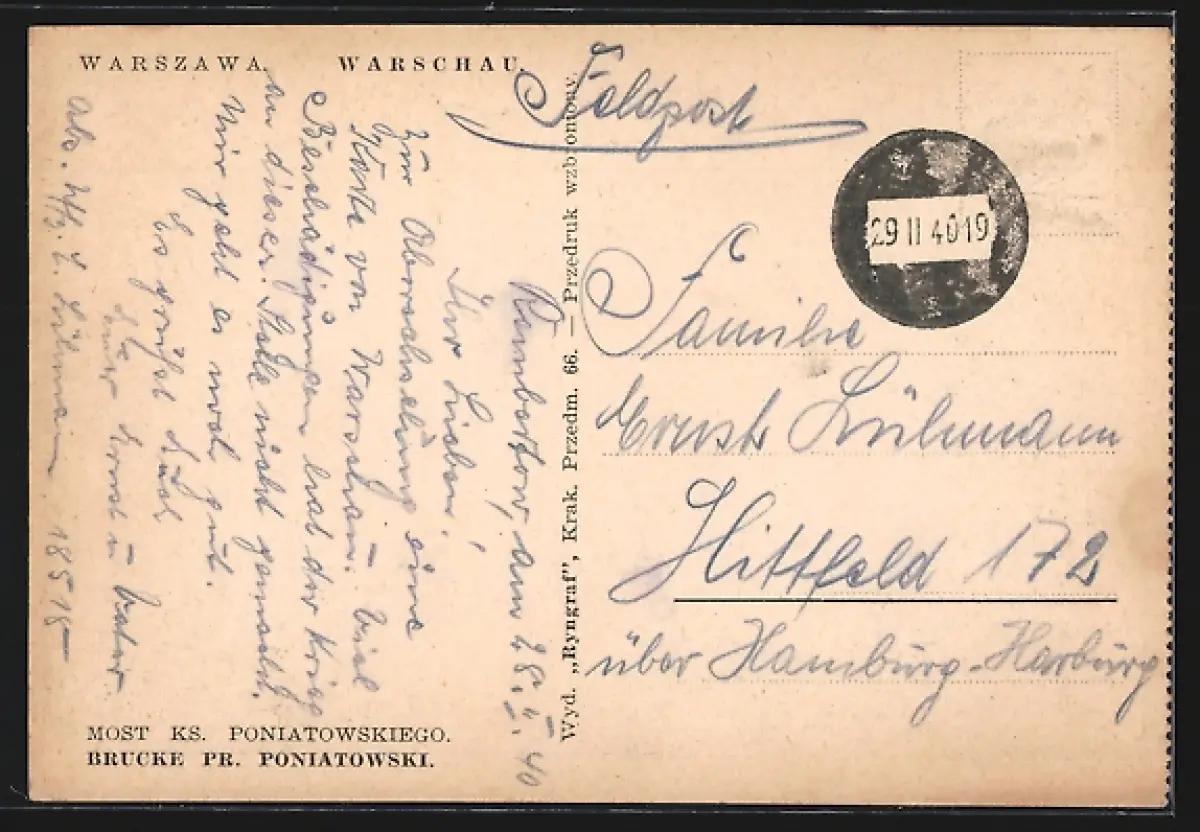 WARSZAWA. WARSCHAU.
Feldpost
29 II 40 19
Rembertow, am 28. II. 40
Ihr Lieben!
Zur Abwechselung eine
Karte von Warschau. – Viel
Beschädigungen hat der Krieg
an dieser Stelle nicht gemacht.
Mir geht es noch gut.
Es grüßt Euch
Euer Ernst u Vater.
Abs. Lühmann 18515
Wyd. „Ryngraf”, Krak. Przedm. 66. — Przedruk wzbroniony.
Familie
Ernst Lühmann
Hittfeld 172
über Hamburg-Harburg
MOST KS. PONIATOWSKIEGO.
BRUCKE PR. PONIATOWSKI.